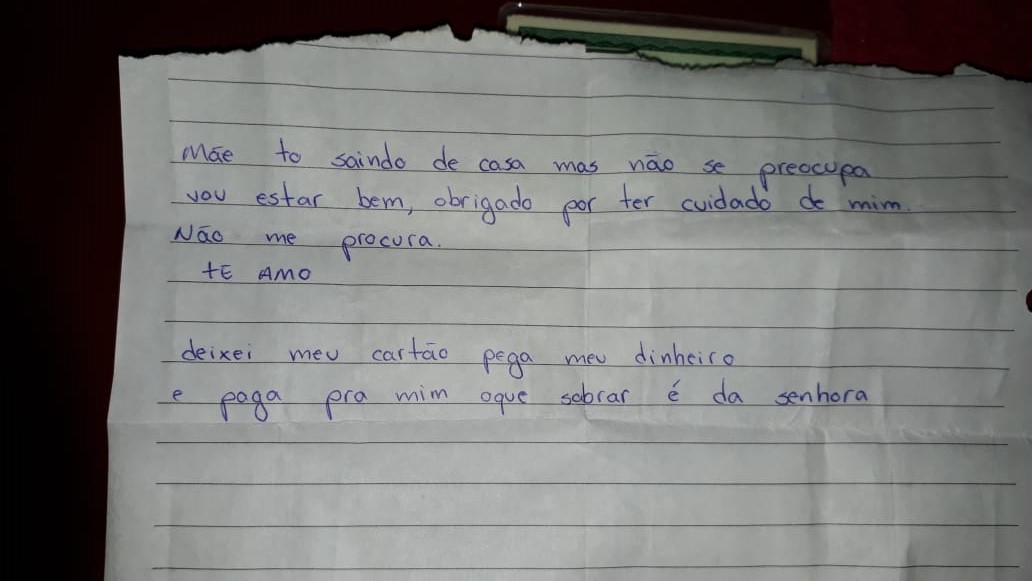 Mãe to saindo de casa mas não se preocupa
vou estar bem, obrigado por ter cuidado de mim.
Não me procura.
tE AMO
deixei meu cartão pega meu dinheiro
e paga pra mim oque sobrar é da senhora